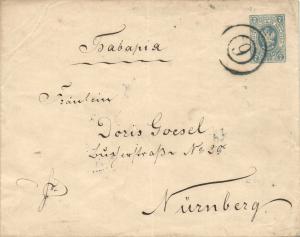 Баварія
6
Fräulein
Doris Goesel
Bucherstraße No 29
Nürnberg